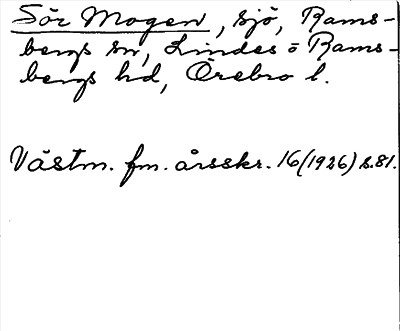 Sör Mogen, sjö, Rams-
bergs sn, Lindes o Rams-
bergs hd, Örebro l.
Västm. fm. årsskr. 16(1926) s.81.